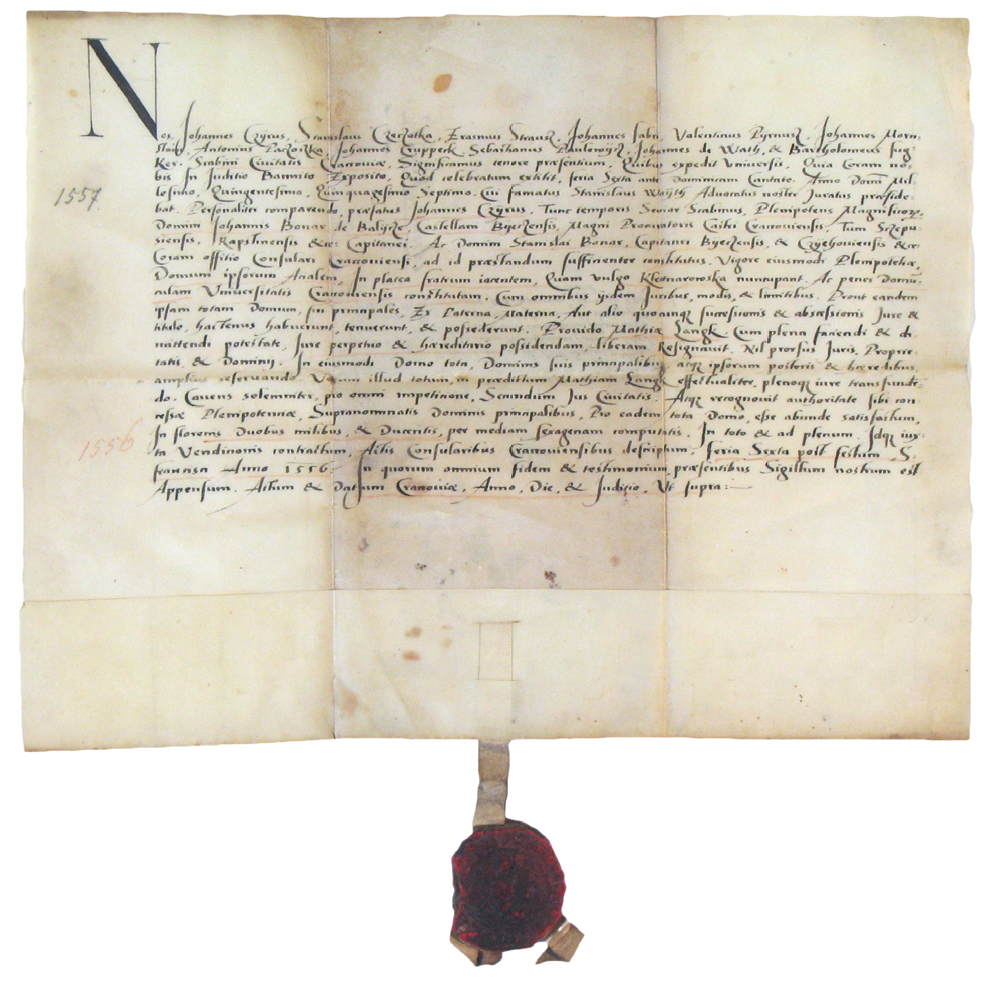 Nos, Johannes Czyrus, Stanislaus Czeczotka, Erasmus Strausz, Johannes fabri, Valentinus Pyrnusz, Johannes Morn-
Antonius Paczoszka, Johannes Cruppeck, Sebastianus Paulowysz, Johannes de Wath, & Bartholomeus fug-
Ker. Scabini Civitatis Cracoviæ, Significamus tenore præsentium, Quibus expedit Universis, Quia Coram no-
bis In Juditio Bannito Exposito, Quod celebratum extitit, feria Sexta ante Dominicam Cantate. Anno Domī Mil-
1557
lesimo, Quingentesimo, Quinquagesimo Septimo. Cui famatus Stanislaus Woyth Advocatus noster Juratus præside-
bat. Personaliter comparendo, præfatus Johannes Czyrus, Tunc temporis Senior Scabinus, Plenipotens
Domini Johannis Bonar de Balycze, Castellani Byeczensis, Magni Procuratoris Castri Cracoviensis, Tum Sczepu-
siensis, Rapstinensis &ce: Capitanei. Ac Domini Stanislai Bonar, Capitanei Byeczensis, & Czyehoviensis &ce:
Coram offitio Consulari Cracoviensi, ad id præstandum sufficienter constitutus. Vigore eiusmodi Plenipotētiæ,
Domum ipsorum Acialem, In platea fratrum iacentem, Quam vulgo nuncupant. Ac penes Domū-
culam Universitatis Cracoviensis constitutam, Cum omnibus ijsdem Juribus, modis, & limitibus. Prout eandem
ipsam totam Domum, sui principales, Ex Paterna, Materna, Aut alio quocunq successionis & abscessionis Jure &
titulo, hactenus habuerunt, tenuerunt, & possederunt. Provido Mathiæ Langk. Cum plena faciendi & di-
mittendi potestate, Jure perpetuo & hæreditario possidendam, liberam Resignavit. Nil prorsus Juris, Proprie-
tatis & Dominij. In eiusmodi Domo tota, Dominis suis principalibus, atq ipsorum posteris & hæredibus,
amplius reservando. Verum illud totum, in prædictum Mathiam Langk effectualiter, plenoq iure transfundē-
do. Cavens solemniter, pro omni impetitione, Secundum Jus Civitatis. Atq recognovit authoritate sibi con-
cessæ Plenipotentiæ, Supranominatis Dominis principalibus, Pro eadem tota Domo, esse abunde satisfactum,
1556
In florenis Duobus milibus, & Ducentis, per mediam sexagenam computatis. In toto & ad plenum. Idq iux-
ta Venditionis contractum, Actis Consularibus Cracoviensibus descriptum, feria Sexta post festum S.
francisci Anno 1556. In quorum omnium fidem & testimonium, præsentibus Sigillum nostrum est
Appensum. Actum & Datum Cracoviæ, Anno, Die, & Juditio, Ut supra: